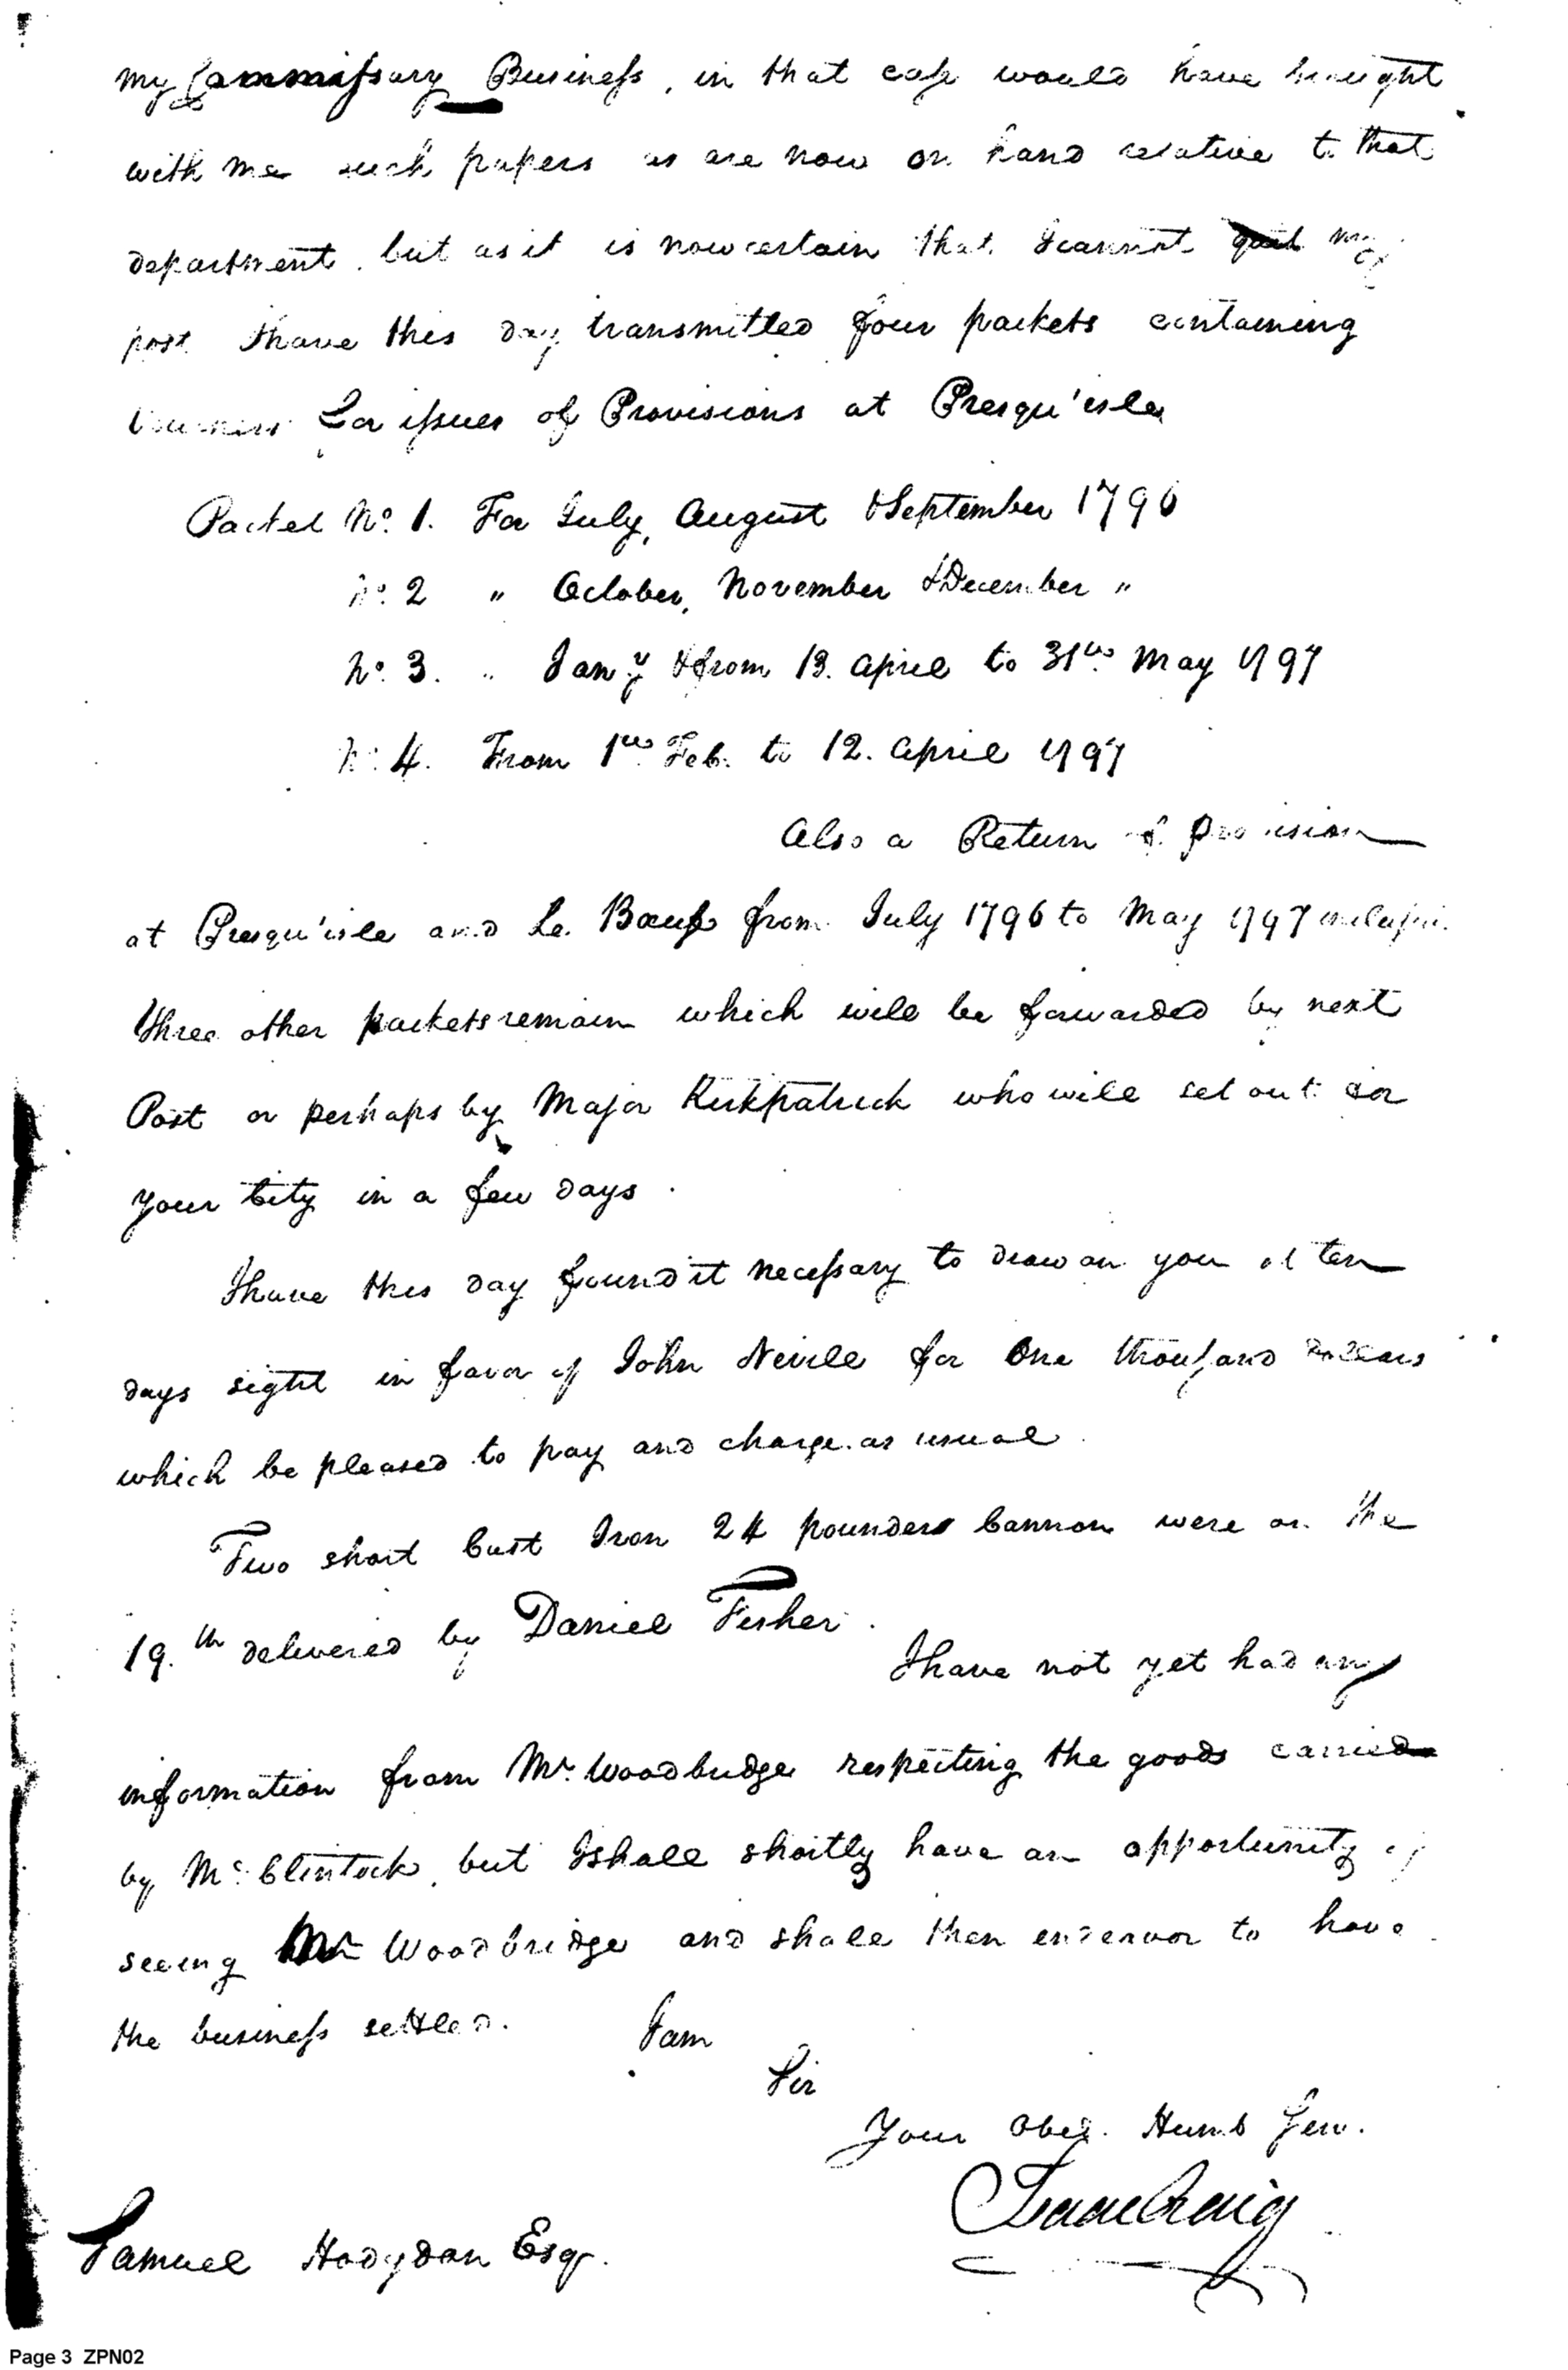 my Commissary Business, in that case would have brought
with me such papers as are now on hand relative to that
department. but as it is now certain that I cannot quit my
post I have this day transmitted four packets containing
Vouchers for issues of Provisions at Presqu'isle
Packet No. 1. For July, August & September 1796
No. 2 " October, November & December "
No. 3. " Jany & from 13. April to 31st May 1797
No. 4. From 1st Feb. to 12. April 1797
Also a Return of Provision
at Presqu'isle and Le Boeuf from July 1796 to May 1797
Three other packets remain which will be forwarded by next
Post or perhaps by Major Kirkpatrick who will set out for
your City in a few days.
I have this day found it necessary to draw on you at ten
days sight in favor of John Nevill for One thousand Dollars
which be pleased to pay and charge as usual.
Two short Cast Iron 24 pounders Cannon were on the
19.th delivered by Daniel Fisher.
I have not yet had any
information from Mr. Woodbridge respecting the goods carried
by Mc.Clintock, but I shall shortly have an opportunity of
seeing Mr Woodbridge and shall then endeavor to have
the business settled. I am
Sir
Your Obed. Humb Serv.
Isaac Craig
Samuel Hodgdon Esqr.
Page 3 ZPN02